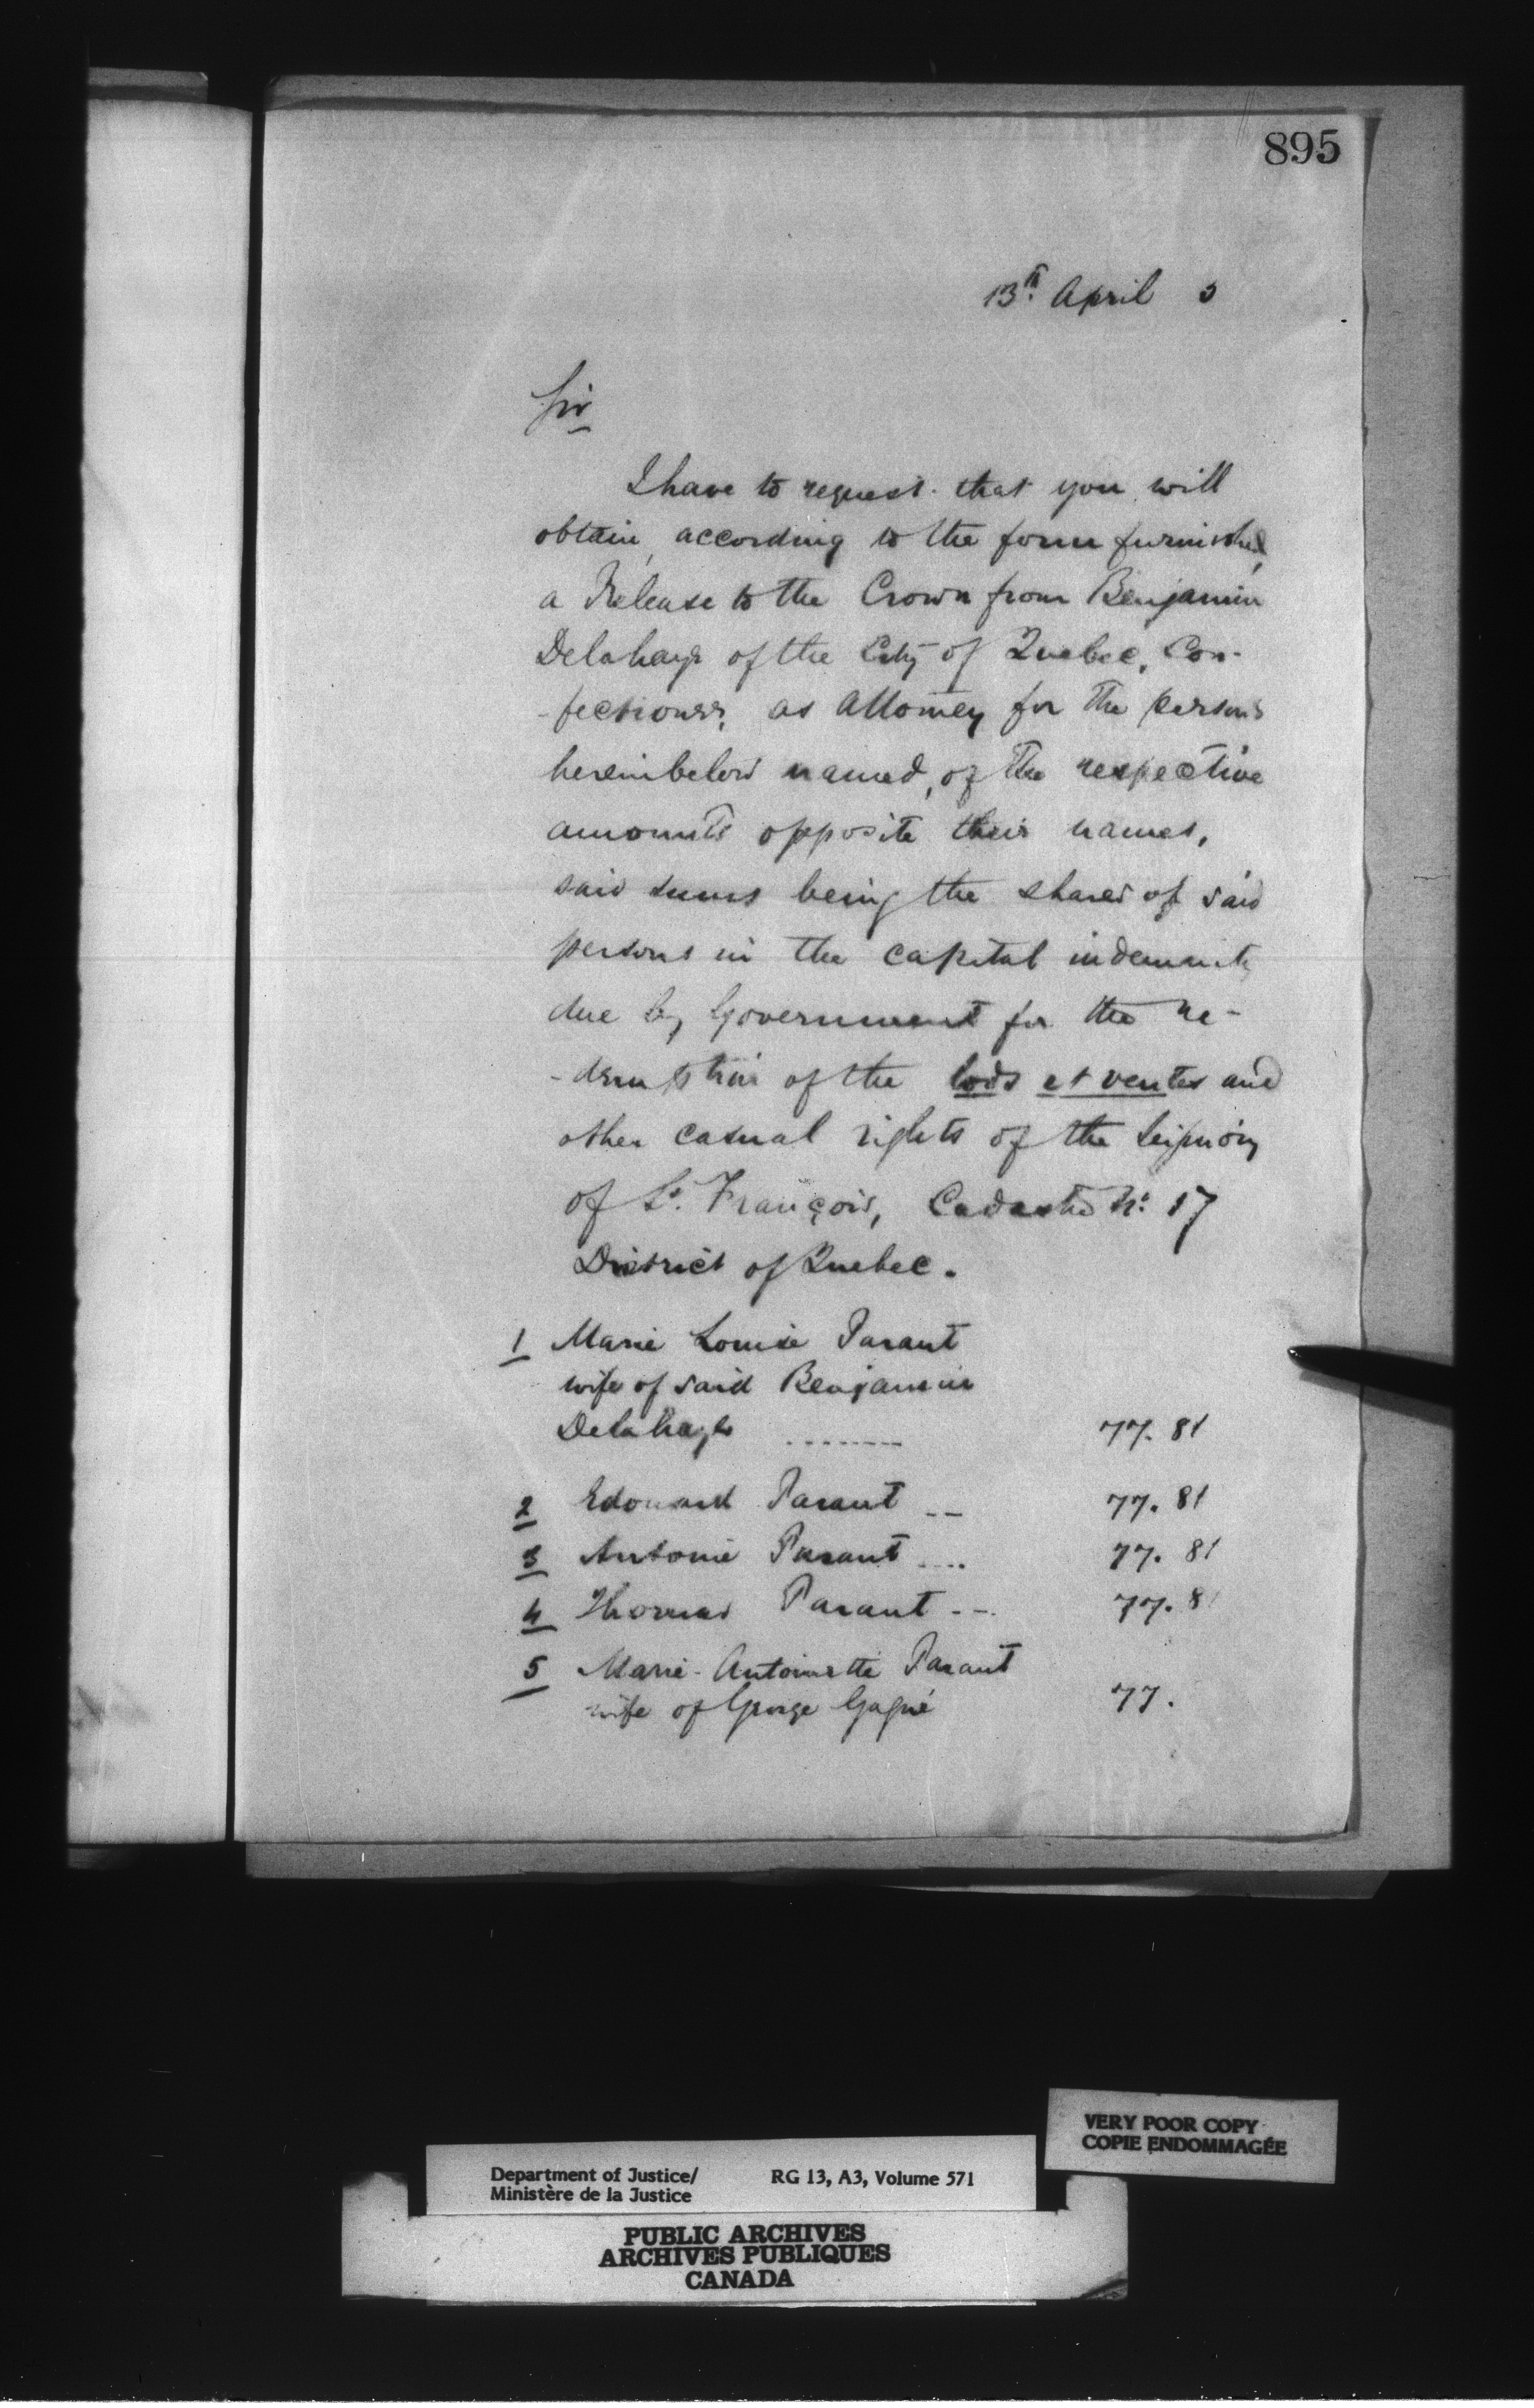 895
13th. April 3
Sir
I have to request that you will
obtain, according to the form furnished,
a Release to the Crown from Benjamin
Delahaye of the City of Quebec, Con-
-fectioner, as Attorney for the persons
hereinbelow named, of the respective
amounts opposite their names,
said sums being the shares of said
persons in the capital indemnity
due by Government for the re-
-demption of the lods et ventes and
other casual rights of the Seigniory
of St. François, Cadastre No. 17
District of Quebec.
1 Marie Louise Parant
wife of said Benjamin
Delahaye ........ 77. 81
2 Edouard Parant -- 77. 81
3 Antoine Parant .... 77. 81
4 Thomas Parant -- 77. 81
5 Marie-Antoinette Parant
wife of George Gagné 77.
VERY POOR COPY
COPIE ENDOMMAGÉE
Department of Justice/ RG 13, A3, Volume 571
Ministère de la Justice
PUBLIC ARCHIVES
ARCHIVES PUBLIQUES
CANADA